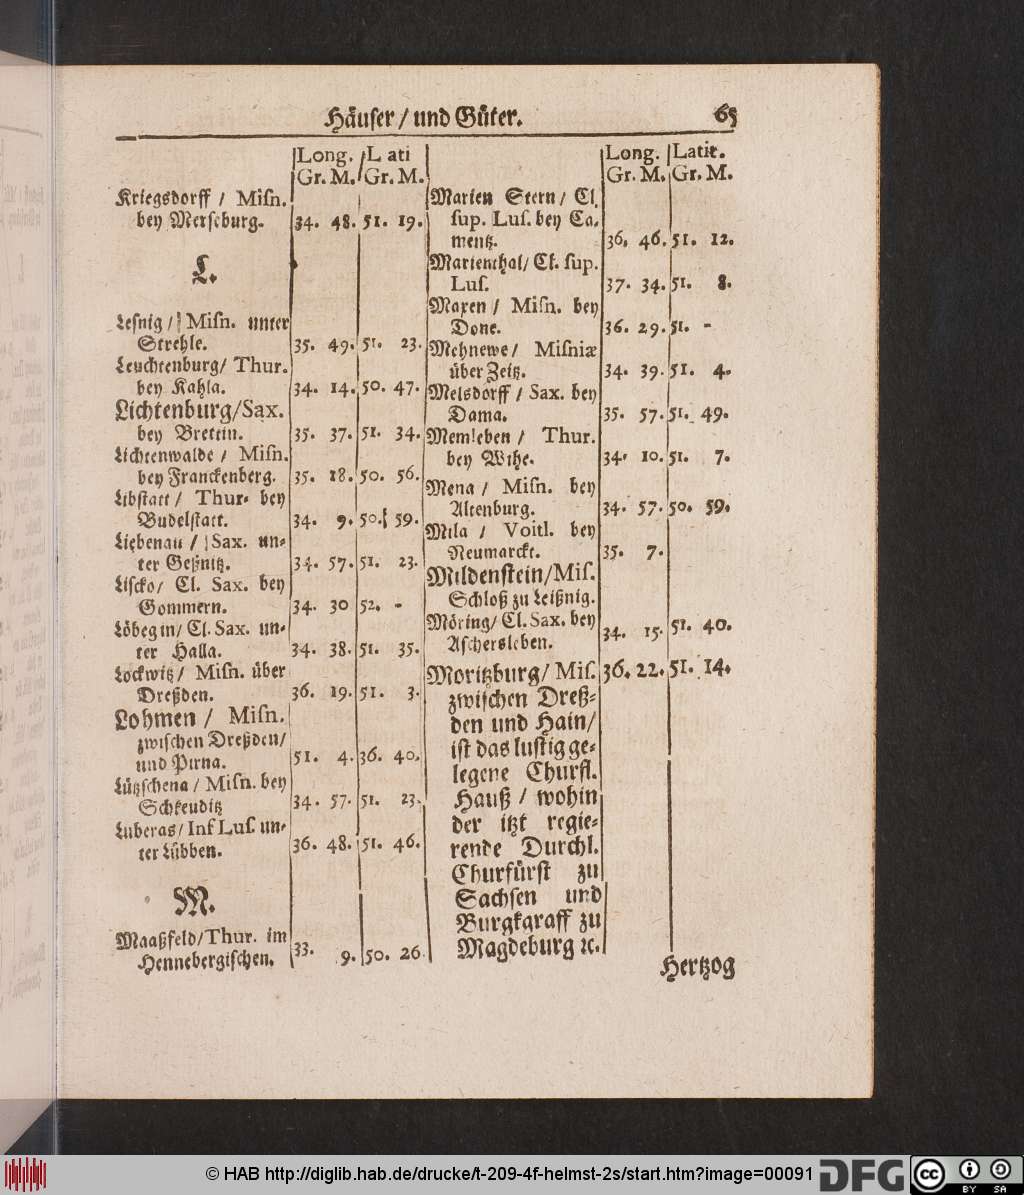 Häuser / und Güter. 65
Long. L ati
Gr. M. Gr. M.
Kriegsdorff / Misn.
bey Merseburg. 34. 48. 51. 19.
L.
Lesnig / Misn. unter
Strehle. 35. 49. 51. 23.
Leuchtenburg / Thur.
bey Kahla. 34. 14. 50. 47.
Lichtenburg / Sax.
bey Brettin. 35. 37. 51. 34.
Lichtenwalde / Misn.
bey Franckenberg. 35. 18. 50. 56.
Libstatt / Thur. bey
Budelstatt. 34. 9. 50. 59.
Liebenau / Sax. un-
ter Geßnitz. 34. 57. 51. 23.
Liscko / Cl. Sax. bey
Gommern. 34. 30 52. -
Löbegin / Cl. Sax. un-
ter Halla. 34. 38. 51. 35.
Lockwitz / Misn. über
Dreßden. 36. 19. 51. 3.
Lohmen / Misn.
zwischen Dreßden /
und Pirna. 51. 4. 36. 40.
Lützschena / Misn. bey
Schkeuditz 34. 57. 51. 23.
Luberas / Inf Lus. un-
ter Lübben. 36. 48. 51. 46.
M.
Maaßfeld / Thur. im
Hennebergischen. 33. 9. 50. 26.
Long. Latit.
Gr. M. Gr. M.
Marien Stern / Cl.
sup. Lus. bey Ca-
mentz. 36. 46. 51. 12.
Marienthal / Cl. sup.
Lus. 37. 34. 51. 8.
Maxen / Misn. bey
Done. 36. 29. 51. -
Mehnewe / Misniæ
über Zeitz. 34. 39. 51. 4.
Melsdorff / Sax. bey
Dama. 35. 57. 51. 49.
Memleben / Thur.
bey Wihe. 34. 10. 51. 7.
Mena / Misn. bey
Altenburg. 34. 57. 50. 59.
Mila / Voitl. bey
Neumarckt. 35. 7.
Mildenstein / Mis.
Schloß zu Leißnig.
Möring / Cl. Sax. bey
Aschersleben. 34. 15. 51. 40.
Moritzburg / Mis. 36. 22. 51. 14.
zwischen Dreß-
den und Hain /
ist das lustig ge-
legene Churfl.
Hauß / wohin
der itzt regie-
rende Durchl.
Churfürst zu
Sachsen und
Burgkgraff zu
Magdeburg ꝛc.
Hertzog
© HAB http://diglib.hab.de/drucke/t-209-4f-helmst-2s/start.htm?image=00091 DFG cc BY SA